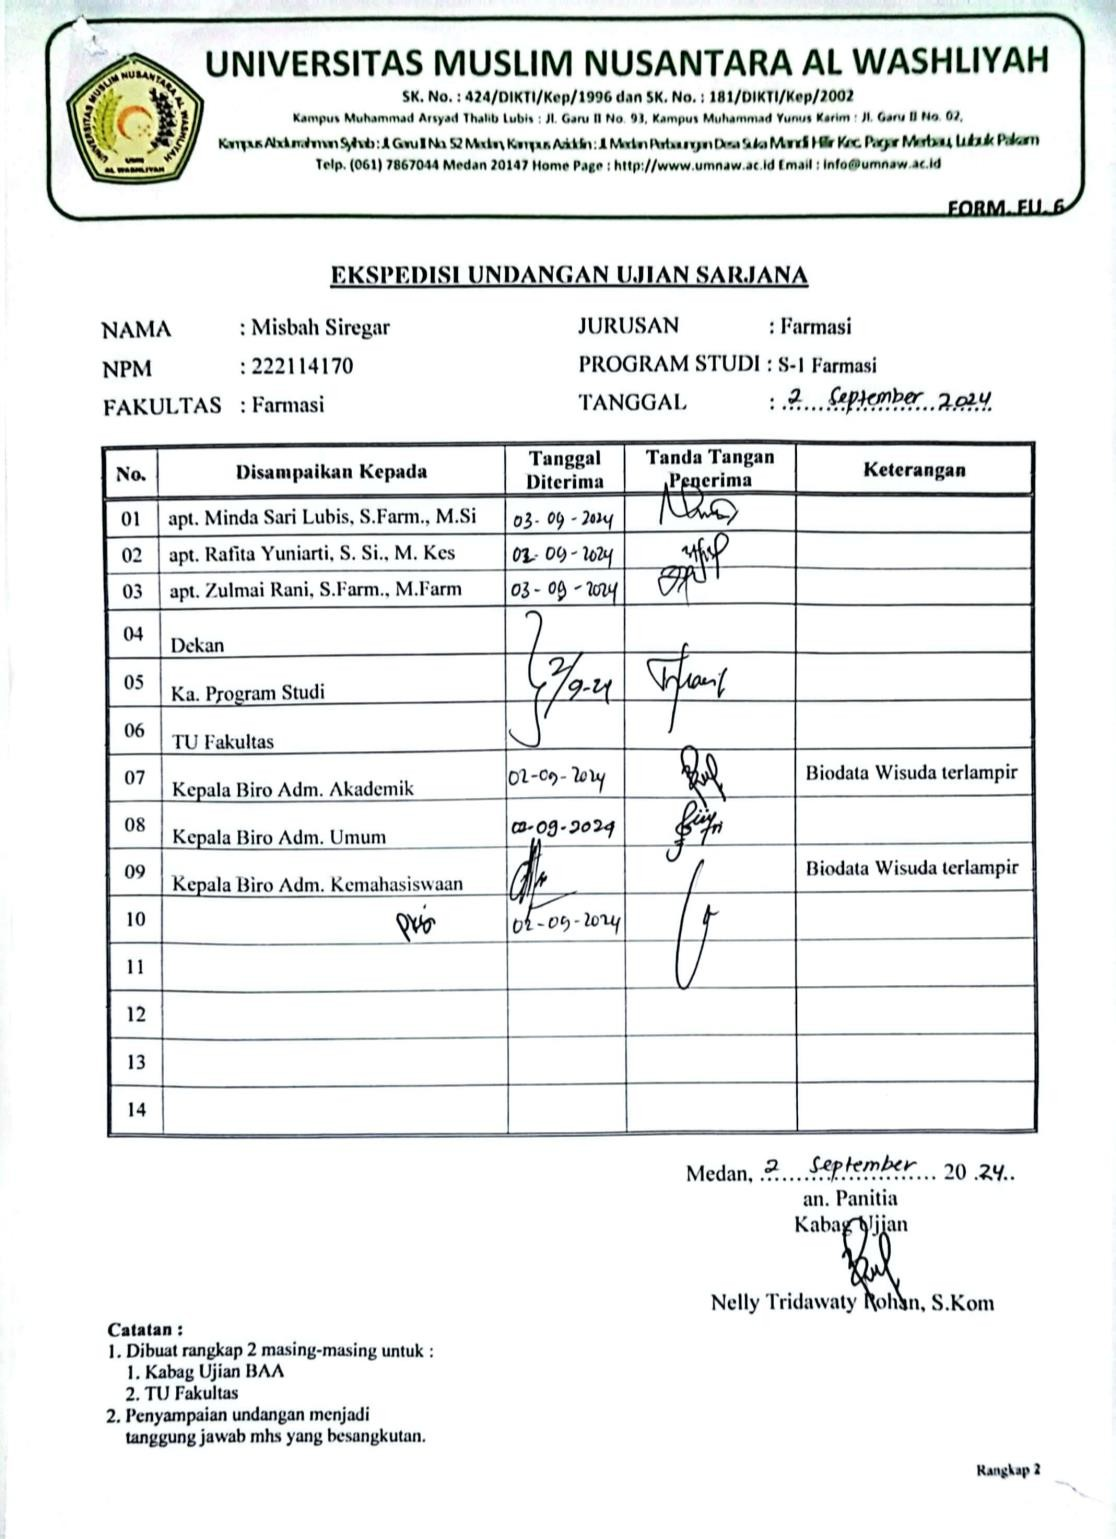 UNIVERSITAS MUSLIM NUSANTARA AL WASHLIYAH
SK. No. : 424/DIKTI/Kep/1996 dan SK. No. : 181/DIKTI/Kep/2002
Kampus Muhammad Arsyad Thalib Lubis : Jl. Garu II No. 93, Kampus Muhammad Yunus Karim : Jl. Garu II No. 02,
Kampus Abdurrahman Syihab : Jl. Garu II No. 52 Medan, Kampus Aziddin : Jl. Medan Perbaungan Desa Suka Mandi Hilir Kec. Pagar Merbau, Lubuk Pakam
Telp. (061) 7867044 Medan 20147 Home Page : http://www.umnaw.ac.id Email : info@umnaw.ac.id
UNIVERSITAS MUSLIM NUSANTARA AL WASHLIYAH
UMN
AL WASHLIYAH
FORM. EU. 6
EKSPEDISI UNDANGAN UJIAN SARJANA
NAMA : Misbah Siregar JURUSAN : Farmasi
NPM : 222114170 PROGRAM STUDI : S-1 Farmasi
FAKULTAS : Farmasi TANGGAL : 2 September 2024
No. Disampaikan Kepada Tanggal Diterima Tanda Tangan Penerima Keterangan
01 apt. Minda Sari Lubis, S.Farm., M.Si 03-09-2024
02 apt. Rafita Yuniarti, S. Si., M. Kes 03-09-2024
03 apt. Zulmai Rani, S.Farm., M.Farm 03-09-2024
04 Dekan
05 Ka. Program Studi 2/9-24
06 TU Fakultas
07 Kepala Biro Adm. Akademik 02-09-2024 Biodata Wisuda terlampir
08 Kepala Biro Adm. Umum 02-09-2024
09 Kepala Biro Adm. Kemahasiswaan Biodata Wisuda terlampir
10 02-09-2024
11
12
13
14
Medan, 2 September 2024
an. Panitia
Kabag Ujian
Nelly Tridawaty Rohan, S.Kom
Catatan :
1. Dibuat rangkap 2 masing-masing untuk :
1. Kabag Ujian BAA
2. TU Fakultas
2. Penyampaian undangan menjadi
tanggung jawab mhs yang besangkutan.
Rangkap 2